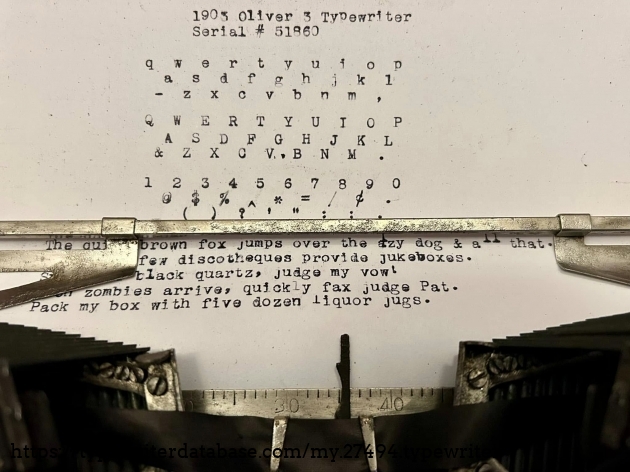 1903 Oliver 3 Typewriter
Serial # 51860
q w e r t y u i o p
a s d f g h j k l
- z x c v b n m ,
Q W E R T Y U I O P
A S D F G H J K L
& Z X C V . B N M .
1 2 3 4 5 6 7 8 9 0
@ $ % ^ * = / ¢ .
( ) ? ' " ; : .
The brown fox jumps over the dog & all that.
few discotheques provide jukeboxes.
black quartz, judge my vow!
zombies arrive, quickly fax judge Pat.
Pack my box with five dozen liquor jugs.
30 40